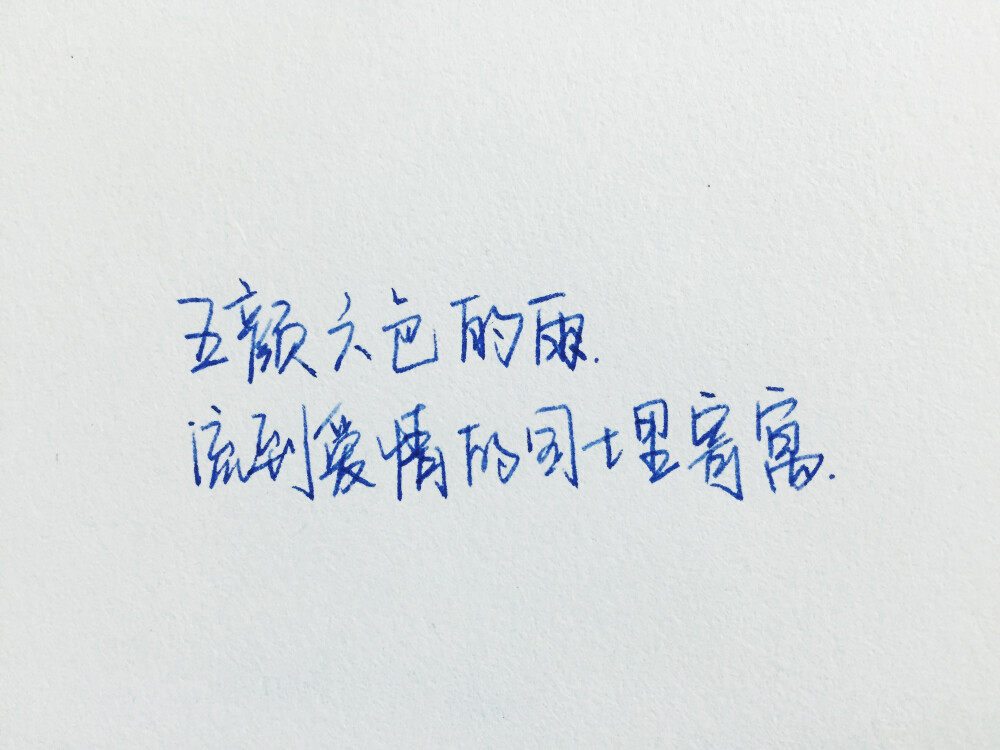 五颜六色的雨.
流到爱情的国土里寄寓.